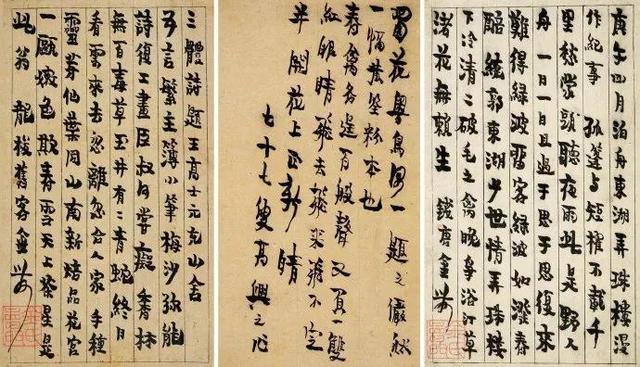 庚午四月泊舟東湖弄珠樓漫
作紀事 孤篷與短櫂不載千
里愁蒙頭聽夜雨此是野人
舟 一日一日且過于思于思復來
難得綠波留客綠波如潑春
醅 繞郭東湖少世情弄珠樓
下冷清二破毛之禽晚爭浴汀草
渚花無賴生 錢唐金農
蜀花粵鳥 一題之儼然
一幅黃筌粉本也
春禽各逞百般聲又買一雙
紅眼睛飛去飛來飛不定
半開花上正新晴
七十七叟高興之作
三體詩題王高士元充山舍
五言繁主簿小筆梅沙彌龍
詩復工畫臣叔日掌癡 香林
無百毒草玉井有二青蛇終日
看雲來去忽離忽合人家 手種
靈芽仙葉同山南新焙品花宮
一甌壞色欺春雪天上茶星是
此翁 龍梭舊客金農